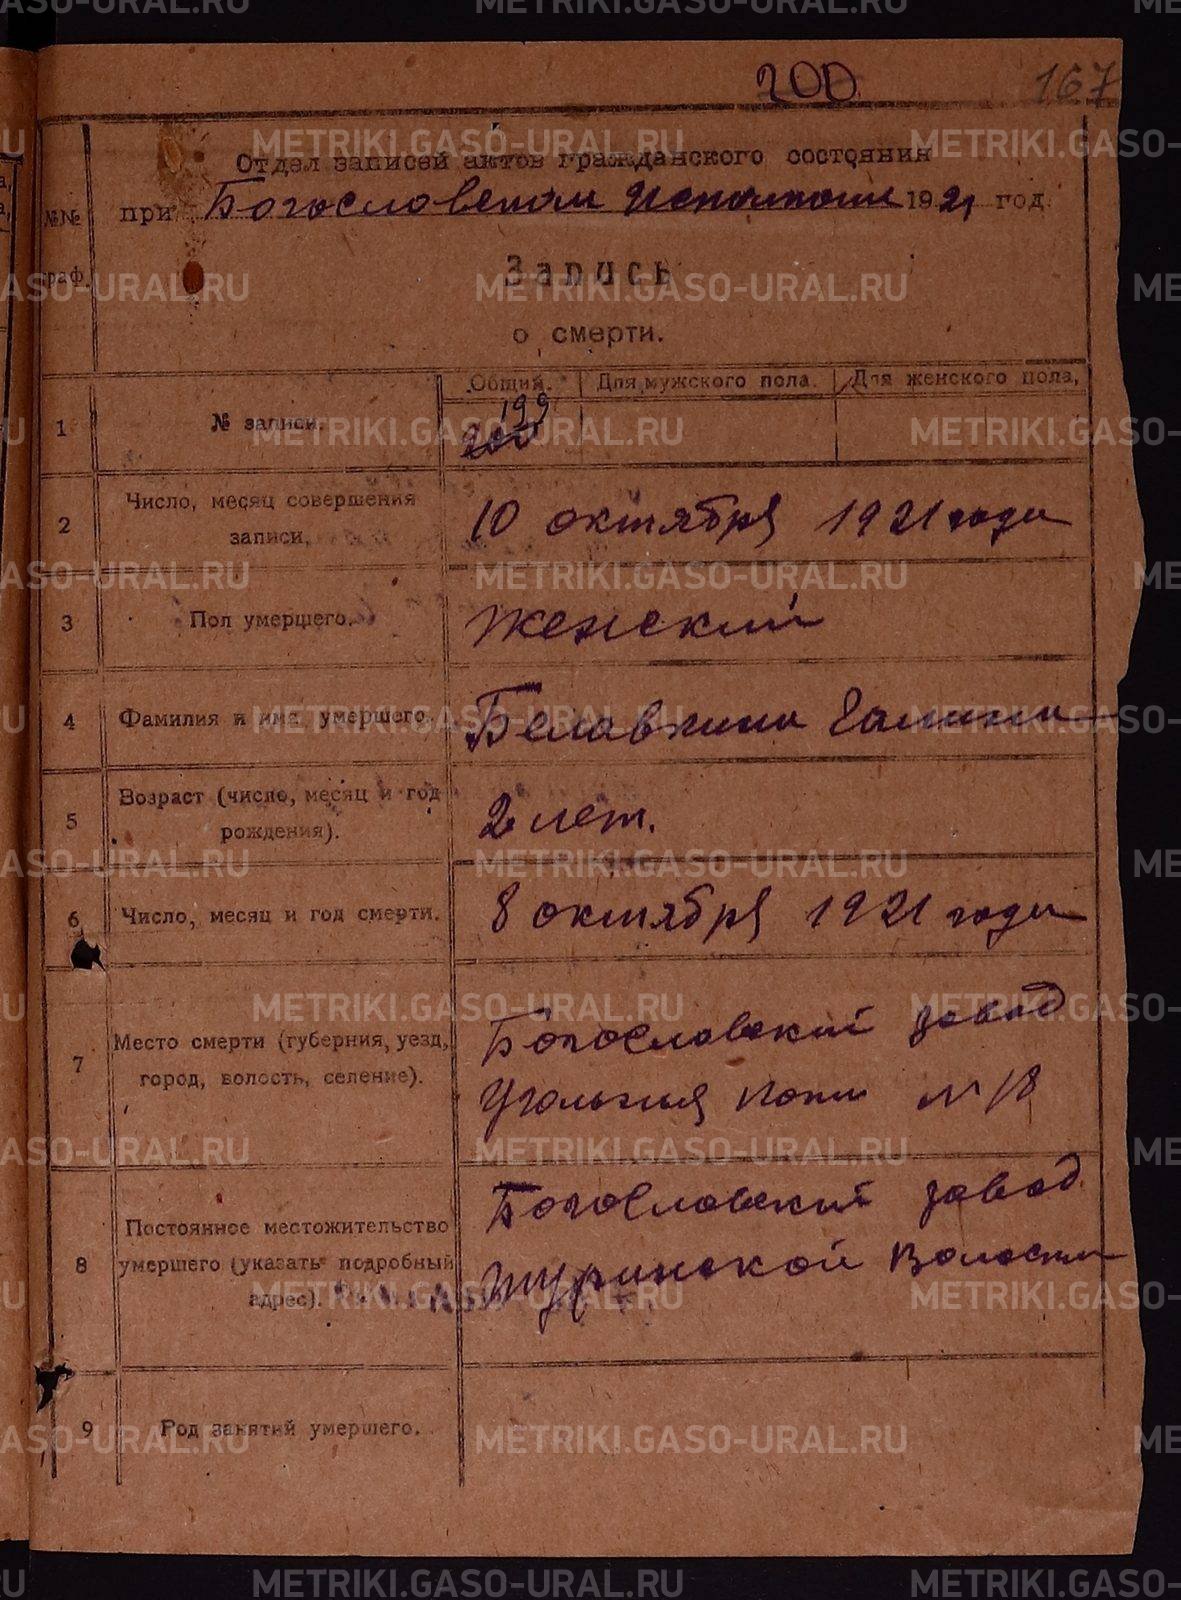 200 167
Отдел записей актов гражданского состояния
при Богословском Исполкоме 1921 год.
№№
граф.
Запись
о смерти.
Общий. Для мужского пола. Для женского пола.
1 № записи. 199
200
2 Число, месяц совершения
записи. 10 октября 1921 года
3 Пол умершего. Женский
4 Фамилия и имя умершего. Белавкина Галина
5 Возраст (число, месяц и год
рождения). 2 лет.
6 Число, месяц и год смерти. 8 октября 1921 года
7 Место смерти (губерния, уезд,
город, волость, селение). Богословский завод
Угольная копи № 18
8 Постоянное местожительство
умершего (указать подробный
адрес). Богословский завод
Туринской Волости
9 Род занятий умершего.
METRIKI.GASO-URAL.RU